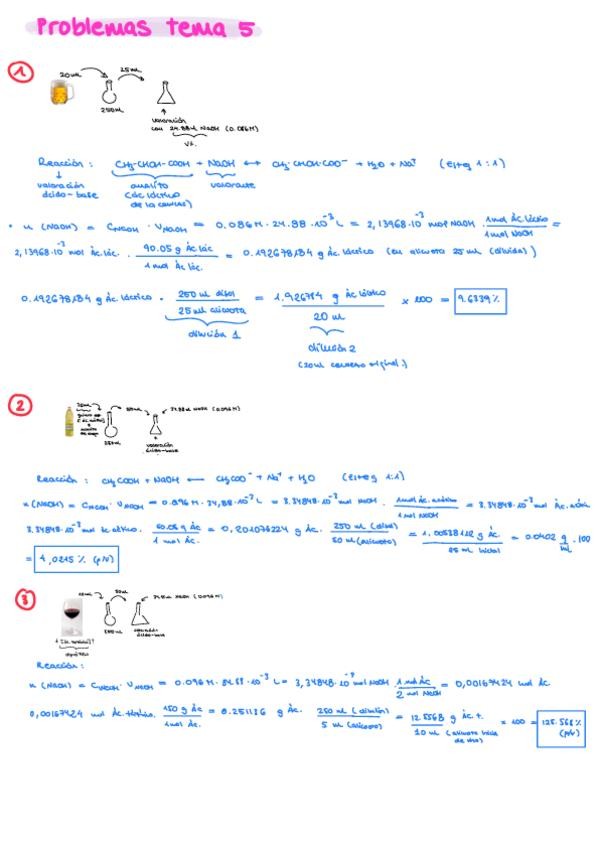 Problemas tema 5
1
20 mL 25 mL
250 mL
valoración
con 24.88 mL NaOH (0.086M)
Reacción: CH3-CHOH-COOH + NaOH ↔ CH3-CHOH-COO⁻ + H2O + Na⁺ (esteq 1:1)
valoración analito valorante
ácido-base (ác láctico
de la cerveza)
• n (NaOH) = C NaOH · V NaOH = 0.086 M · 24.88·10⁻³ L = 2,13968·10⁻³ mol NaOH · 1 mol Ác. láctico / 1 mol NaOH =
2,13968·10⁻³ mol Ác. lác. · 90.05 g Ác lác / 1 mol Ác lác. = 0.192678184 g Ác láctico (en alícuota 25 mL (diluida))
0.192678184 g Ác láctico · 250 mL disol / 25 mL alícuota = 1,926784 g Ác láctico / 20 mL × 100 = 9.6339 %
dilución 1 dilución 2
2
250 mL
valoración
ácido-base
Reacción: CH3COOH + NaOH ⟷ CH3COO⁻ + Na⁺ + H2O (esteq 1:1)
n (NaOH) = C NaOH · V NaOH = 0.096 M · 34,88·10⁻³ L = 3.34848·10⁻³ mol NaOH · 1 mol Ác. acético / 1 mol NaOH = 3.34848·10⁻³ mol Ác.
3.34848·10⁻³ mol · 60.05 g Ác / 1 mol Ác. = 0,201076224 g Ác. · 250 mL (disol) / 50 mL (alícuota) = 1,00538112 g Ác. / 25 mL = 0.0402 g/mL · 100
= 4,0215 % (p/v)
3
Reacción:
n (NaOH) = C NaOH · V NaOH = 0.096 M · 34.88·10⁻³ L = 3,34848·10⁻³ mol NaOH · 1 mol Ác / 2 mol NaOH = 0,00167424 mol Ác.
0,00167424 mol Ác. · 150 g Ác / 1 mol Ác. = 0.251136 g Ác. · 250 mL (disolución) / 5 mL (alícuota) = 12.5568 g Ác. t. / 10 mL × 100 = 125.568 % (p/v)